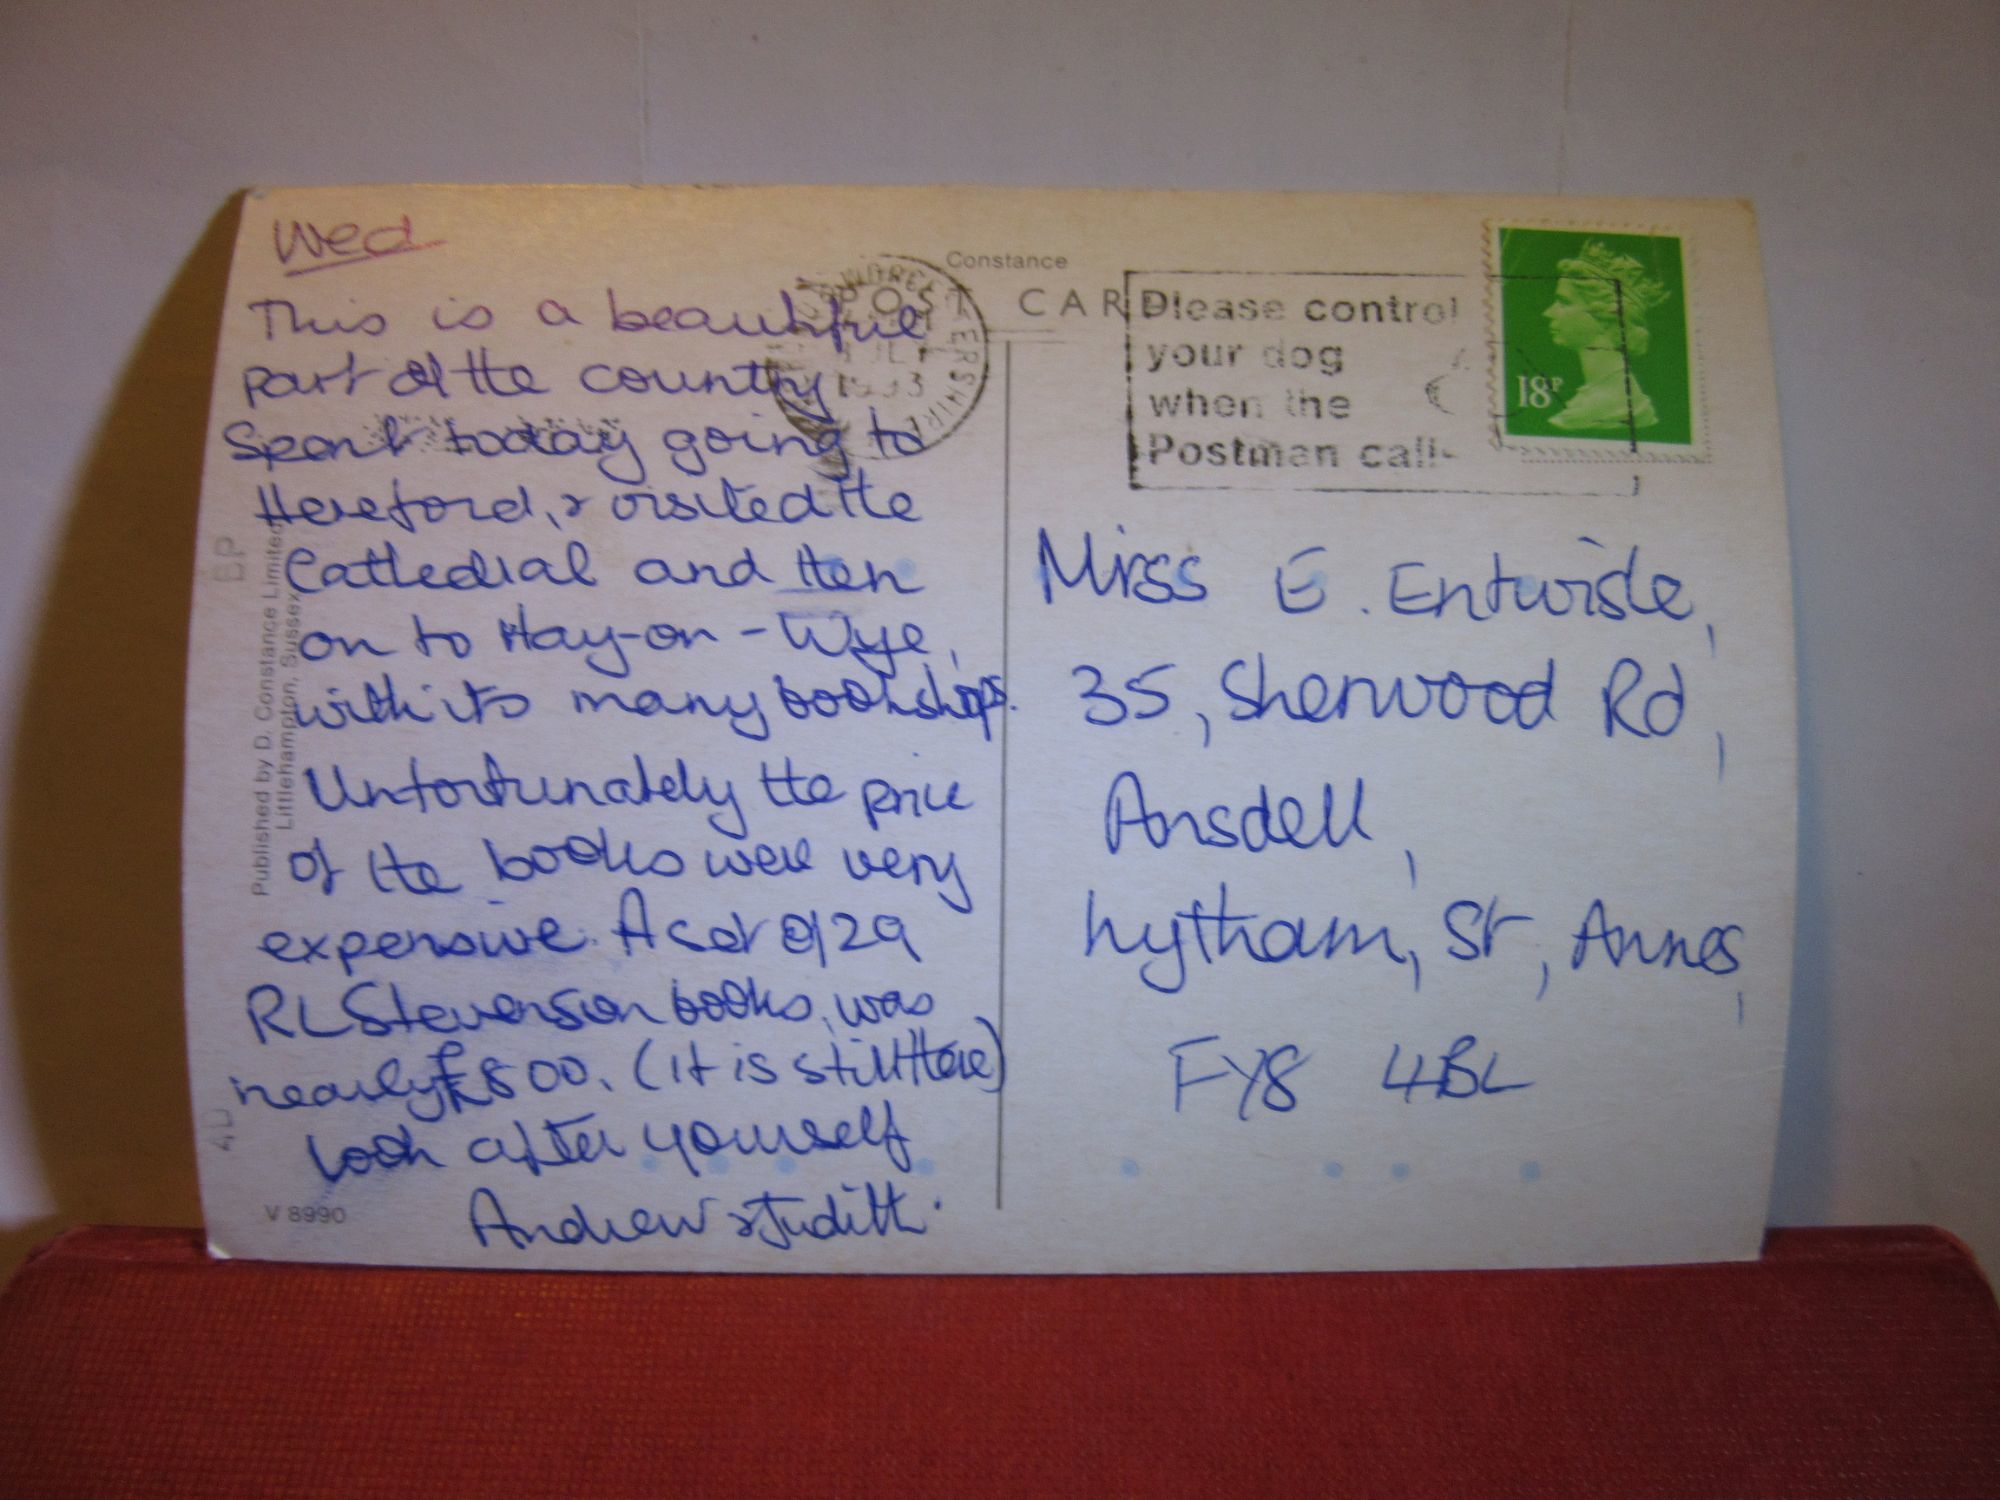 Wed
This is a beautiful
part of the country
Spent today going to
Hereford, & visited the
Cathedral and then
on to Hay-on-Wye,
with its many bookshops.
Unfortunately the price
of the books were very
expensive. A set of 29
RL Stevenson books, was
nearly £800. (it is still there)
look after yourself
Andrew & Judith.
Published by D. Constance Limited,
Littlehampton, Sussex
V 8990
Constance
POST CARD
ERSHIRE
Please control
your dog
when the
Postman calls
18P
Miss E. Entwisle,
35, Sherwood Rd,
Ansdell,
Lytham, St, Annes,
FY8 4BL